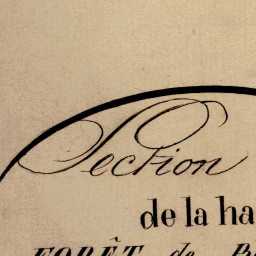 Section
de la ha
FORÊT de